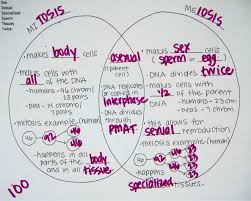 Sex
Sexual
Specialized
Sperm
Tissues
Twice
MITOSIS
- makes body cells
- makes all cells with
of the DNA
- humans - 46 chrom/
23 pairs
- peas -
- mitosis example (human)
46
46
46
- happens in all
parts of the body
and in all tissue
100
asexual
(parent cell)
- DNA replicates
(or copied) in
interphase
- DNA divides
through
PMAT
MEIOSIS
- makes sex cells
( sperm or egg )
- DNA divides twice
- makes cells with
1/2 of the DNA
of the parent
- humans - 23 chrom
- peas - 7 chrom
- this allows for
sexual reproduction
- meiosis example (human)
46
- happens in
specialized tissues.